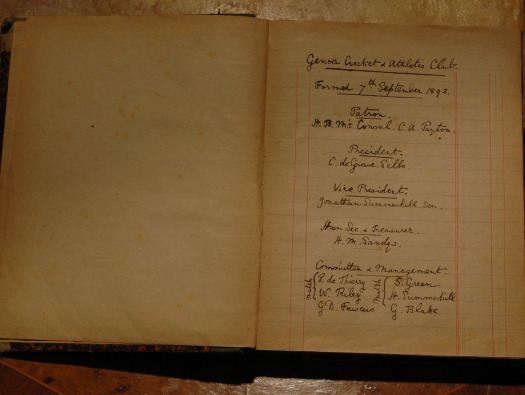 Genoa Cricket & Athletic Club.
Formed 7th September 1893.
Patron.
H. B. M's Consul. C. A. Payton.
President.
C. de Grave Sells.
Vice President.
Jonathan Summerhill Sen.
Hon Sec. & Treasurer.
H. M. Sandys.
Committee & Management
P. de Thierry S. Green
W. Riley H. Summerhill
G. D. Fawcus G. Blake